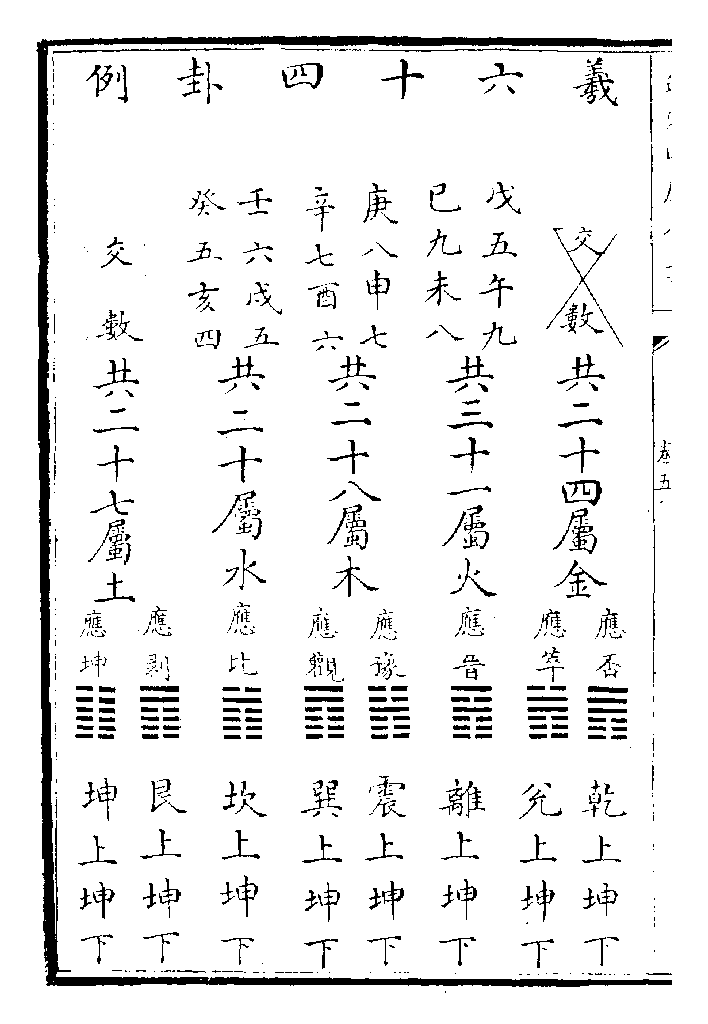 羲六十四卦例
交數
共二十四屬金
應否
乾上坤下
應萃
兊上坤下
戊五午九
巳九未八
共三十一屬火
應晋
離上坤下
庚八申七
辛七酉六
共二十八屬木
應豫
震上坤下
應觀
巽上坤下
壬六戌五
癸五亥四
共二十屬水
應比
坎上坤下
交數
共二十七屬土
應剥
艮上坤下
應坤
坤上坤下
卷五